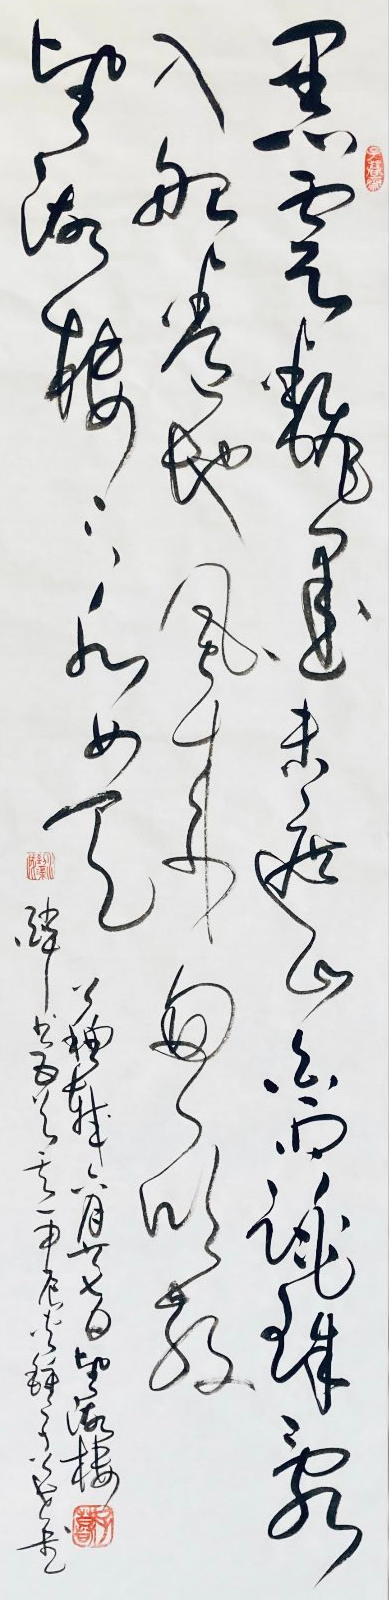 黑雲翻墨未遮山白雨跳珠亂
入船卷地風來忽吹散
望湖樓下水如天
蘇軾六月廿七日望湖樓
醉書五首其一甲辰